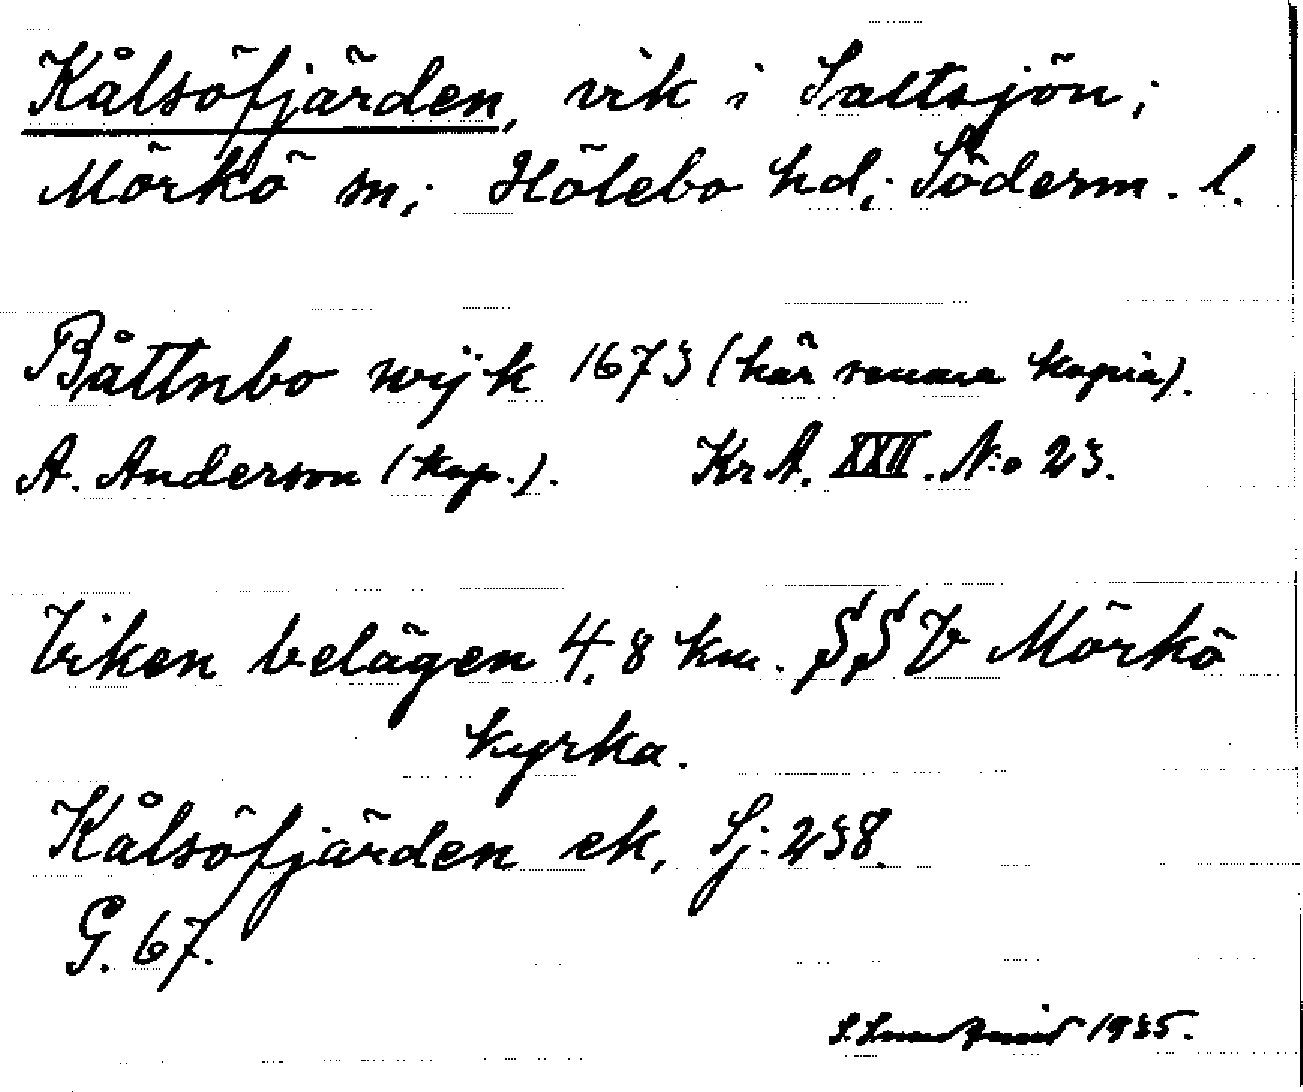 Kålsöfjärden, vik i Saltsjön;
Mörkö sn; Hölebo hd; Söderm. l.
Båttnbo wijk 1673 (här senare kopia).
A. Anderson (kop.). Kr A. XXII. N:o 23.
Viken belägen 4,8 km. SSV Mörkö
kyrka.
Kålsöfjärden ek, Sj: 238.
G. 67.
S. 1935.